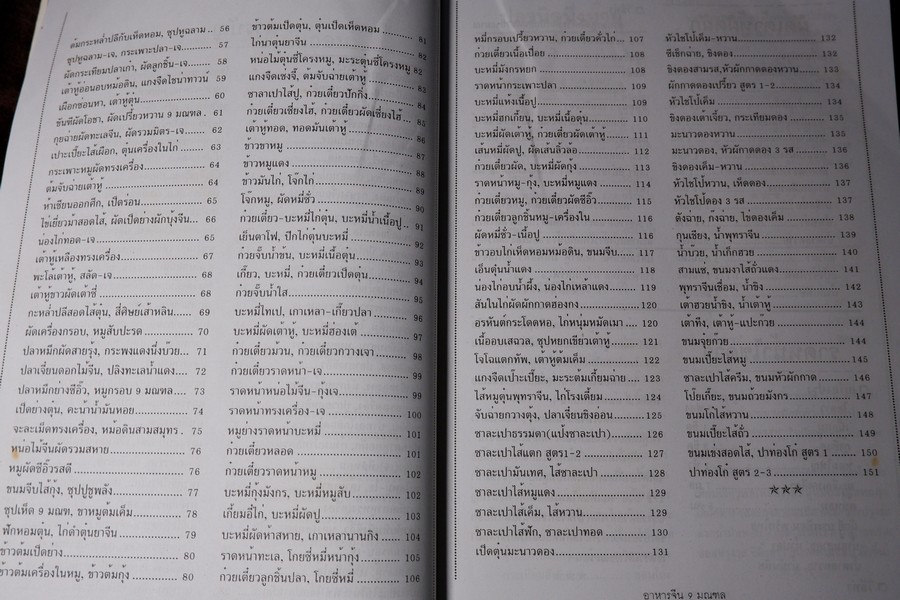 ต้มกระหล่ำปลีกับเห็ดหอม, ซุปหูฉลาม .. 56
ซุปหูฉลาม-เจ, กระเพาะปลา-เจ ........ 57
ผัดกระเทียมปลาเก๋า, ผัดลูกชิ้น-เจ ........ 58
เต้าหู้อ่อนอบหม้อดิน, แกงจืดไชน่าทาวน์ 59
เผือกซ่อนหา, เต้าหู้ตุ๋น ........ 60
ขันทีผัดโอชา, ผัดเปรี้ยวหวาน 9 มณฑล . 61
กุยฉ่ายผัดทะเลจีน, ผัดรวมมิตร-เจ ........ 62
เปาะเปี๊ยะไส้เผือก, ตุ๋นเครื่องในไก่ ........ 63
กระเพาะหมูผัดทรงเครื่อง ........ 64
ต้มจับฉ่ายเต้าหู้ ........ 64
ห้าเซียนออกศึก, เป็ดร่อน ........ 65
ไข่เยี่ยวม้าสอดไส้, ผัดเป็ดย่างผักบุ้งจีน ... 66
น่องไก่ทอด-เจ ........ 65
เต้าหู้เหลืองทรงเครื่อง ........ 67
พะโล้เต้าหู้, สลัด-เจ ........ 68
เต้าหู้ขาวผัดเต้าซี่ ........ 68
กะหล่ำปลีสอดไส้ตุ๋น, สี่ศิษย์เส้าหลิน ........ 69
ผัดเครื่องกรอบ, หมูสับปะรด ........ 70
ปลาหมึกผัดสายรุ้ง, กระพงแดงนึ่งบ๊วย ... 71
ปลาเจี๋ยนดอกไม้จีน, ปลิงทะเลน้ำแดง ..... 72
ปลาหมึกย่างซีอิ๊ว, หมูกรอบ 9 มณฑล ... 73
เป็ดย่างตุ๋น, คะน้าน้ำมันหอย ........ 74
จะละเม็ดทรงเครื่อง, หม้อดินสามสมุทร . 75
หน่อไม้จีนผัดรวมสหาย ........ 76
หมูผัดซีอิ๊วรสดี ........ 76
ขนมจีบไส้กุ้ง, ซุปปูซูพลัง ........ 77
ซุปเห็ด 9 มณฑ, ขาหมูต้มเค็ม ........ 78
ฟักหอมตุ๋น, ไก่ดำตุ๋นยาจีน ........ 79
ข้าวต้มเป็ดย่าง ........ 80
ข้าวต้มเครื่องในหมู, ข้าวต้มกุ้ง ........ 80
ข้าวต้มเป็ดตุ๋น, ตุ๋นเป็ดเห็ดหอม ........ 81
ไก่นาตุ๋นยาจีน ........ 82
หน่อไม้ตุ๋นซี่โครงหมู, มะระตุ๋นซี่โครงหมู 82
แกงจืดเซ่งจี้, ต้มจับฉ่ายเต้าหู้ ........ 83
ซาลาเปาไส้ปู, ก๋วยเตี๋ยวปักกิ่ง ........ 84
ก๋วยเตี๋ยวเซี่ยงไฮ้, ก๋วยเตี๋ยวผัดเซี่ยงไฮ้ .. 85
เต้าหู้ทอด, ทอดมันเต้าหู้ ........ 86
ข้าวขาหมู ........ 87
ข้าวหมูแดง ........ 88
ข้าวมันไก่, โจ๊กไก่ ........ 89
โจ๊กหมู, ผัดหมี่ซั่ว ........ 90
ก๋วยเตี๋ยว-บะหมี่ไก่ตุ๋น, บะหมี่น้ำเนื้อปู .. 91
เย็นตาโฟ, ปีกไก่ตุ๋นบะหมี่ ........ 92
ก๋วยจั๊บน้ำข้น, บะหมี่เนื้อตุ๋น ........ 93
เกี๊ยว, บะหมี่, ก๋วยเตี๋ยวเป็ดตุ๋น ........ 94
ก๋วยจั๊บน้ำใส ........ 95
บะหมี่ไทเป, เกาเหลา-เกี๊ยวปลา ........ 96
บะหมี่ผัดเต้าหู้, บะหมี่ฮ่องเต้ ........ 97
ก๋วยเตี๋ยวม้วน, ก๋วยเตี๋ยวกวางเจา ........ 98
ก๋วยเตี๋ยวราดหน้า-เจ ........ 99
ราดหน้าหน่อไม้จีน-กุ้งเจ ........ 99
ราดหน้าทรงเครื่อง-เจ ........ 100
หมูย่างราดหน้าบะหมี่ ........ 101
ก๋วยเตี๋ยวหลอด ........ 101
ก๋วยเตี๋ยวราดหน้าหมู ........ 102
บะหมี่กุ้งมังกร, บะหมี่หมูสับ ........ 102
เกี้ยมอี๋ไก่, บะหมี่ผัดปู ........ 103
บะหมี่ผัดห้าสหาย, เกาเหลานานกิง ..... 104
ราดหน้าทะเล, โกยซี่หมี่หน้ากุ้ง ........ 105
ก๋วยเตี๋ยวลูกชิ้นปลา, โกยซี่หมี่ ........ 106
หมี่กรอบเปรี้ยวหวาน, ก๋วยเตี๋ยวคั่วไก่ ... 107
ก๋วยเตี๋ยวเนื้อเปื่อย ........ 108
บะหมี่มังกรหยก ........ 108
ราดหน้ากระเพาะปลา ........ 109
บะหมี่แห้งเนื้อปู ........ 109
บะหมี่ฮกเกี้ยน, บะหมี่เนื้อตุ๋น ........ 110
บะหมี่ผัดเต้าหู้, ก๋วยเตี๋ยวผัดเต้าหู้ ........ 111
เส้นหมี่ผัดปู, ผัดเส้นลิ้วล้อ ........ 112
ก๋วยเตี๋ยวผัด, บะหมี่ผัดกุ้ง ........ 113
ราดหน้าหมู-กุ้ง, บะหมี่หมูแดง ........ 114
ก๋วยเตี๋ยวหมู, ก๋วยเตี๋ยวผัดซีอิ๊ว ........ 115
ก๋วยเตี๋ยวลูกชิ้นหมู-เครื่องใน ........ 116
ผัดหมี่ซั่ว-เนื้อปู ........ 116
ข้าวอบไก่เห็ดหอมหม้อดิน, ขนมจีบ ...... 117
เอ็นตุ๋นน้ำแดง ........ 118
น่องไก่อบน้ำผึ้ง, น่องไก่เหล้าแดง ........ 119
สันในไก่ผัดผักกาดฮ่องกง ........ 120
อรหันต์กระโดดหอ, ไก่หนุ่มหมัดเมา .... 120
เนื้ออบเสฉวล, ซุปหยกเขียวเต้าหู้ ........ 121
โจโฉแตกทัพ, เต้าหู้ต้มเค็ม ........ 122
แกงจืดเปาะเปี๊ยะ, มะระต้มเกี้ยมฉ่าย ..... 123
ไส้หมูตุ๋นพุทราจีน, ไก่โรงเตี๊ยม ........ 124
จับฉ่ายกวางตุ้ง, ปลาเจี๋ยนขิงอ่อน ........ 125
ซาละเปาธรรมดา(แป้งซาละเปา) ........ 126
ซาละเปาไส้แตก สูตร1-2 ........ 127
ซาละเปามันเทศ, ไส้ซาละเปา ........ 128
ซาละเปาไส้หมูแดง ........ 129
ซาละเปาไส้เค็ม, ไส้หวาน ........ 129
ซาละเปาไส้ฟัก, ซาละเปาทอด ........ 130
เป็ดตุ๋นมะนาวดอง ........ 131
หัวไชโป้เค็ม-หวาน ........ 132
ซีเซ็กฉ่าย, ขิงดอง ........ 132
ขิงดองสามรส,หัวผักกาดดองหวาน ........ 133
ผักกาดดองเปรี้ยว สูตร 1-2 ........ 134
หัวไชโป้เค็ม ........ 134
ขิงดองเต้าเจี้ยว, กระเทียมดอง ........ 135
มะนาวดองหวาน ........ 135
มะนาวดอง, หัวผักกาดดอง 3 รส ........ 136
ขิงดองเค็ม-หวาน ........ 136
หัวไชโป้หวาน, เห็ดดอง ........ 137
หัวไชโป้ดอง 3 รส ........ 137
ตังฉ่าย, กุ้งฉ่าย, ไข่ดองเค็ม ........ 138
กุนเชียง, น้ำพุทราจีน ........ 139
น้ำบ๊วย, น้ำเก็กฮวย ........ 140
สามแซ่, ขนมงาไส้ถั่วแดง ........ 141
พุทราจีนเชื่อม, น้ำขิง ........ 142
เต้าฮวยน้ำขิง, น้ำเต้าหู้ ........ 143
เต้าทึง, เต้าหู้-แปะก๊วย ........ 144
ขนมจุ๋ยก๊วย ........ 144
ขนมเปี๊ยะไส้หมู ........ 145
ซาละเปาไส้ครีม, ขนมหัวผักกาด ........ 146
โบ๊ยเกี้ย, ขนมถ้วยมังกร ........ 147
ขนมโก๋ไส้หวาน ........ 148
ขนมเปี๊ยะไส้ถั่ว ........ 149
ขนมเข่งสอดไส้, ปาท่องโก๋ สูตร 1 ...... 150
ปาท่องโก๋ สูตร 2-3 ........ 151
★★★
อาหารจีน 9 มณฑล